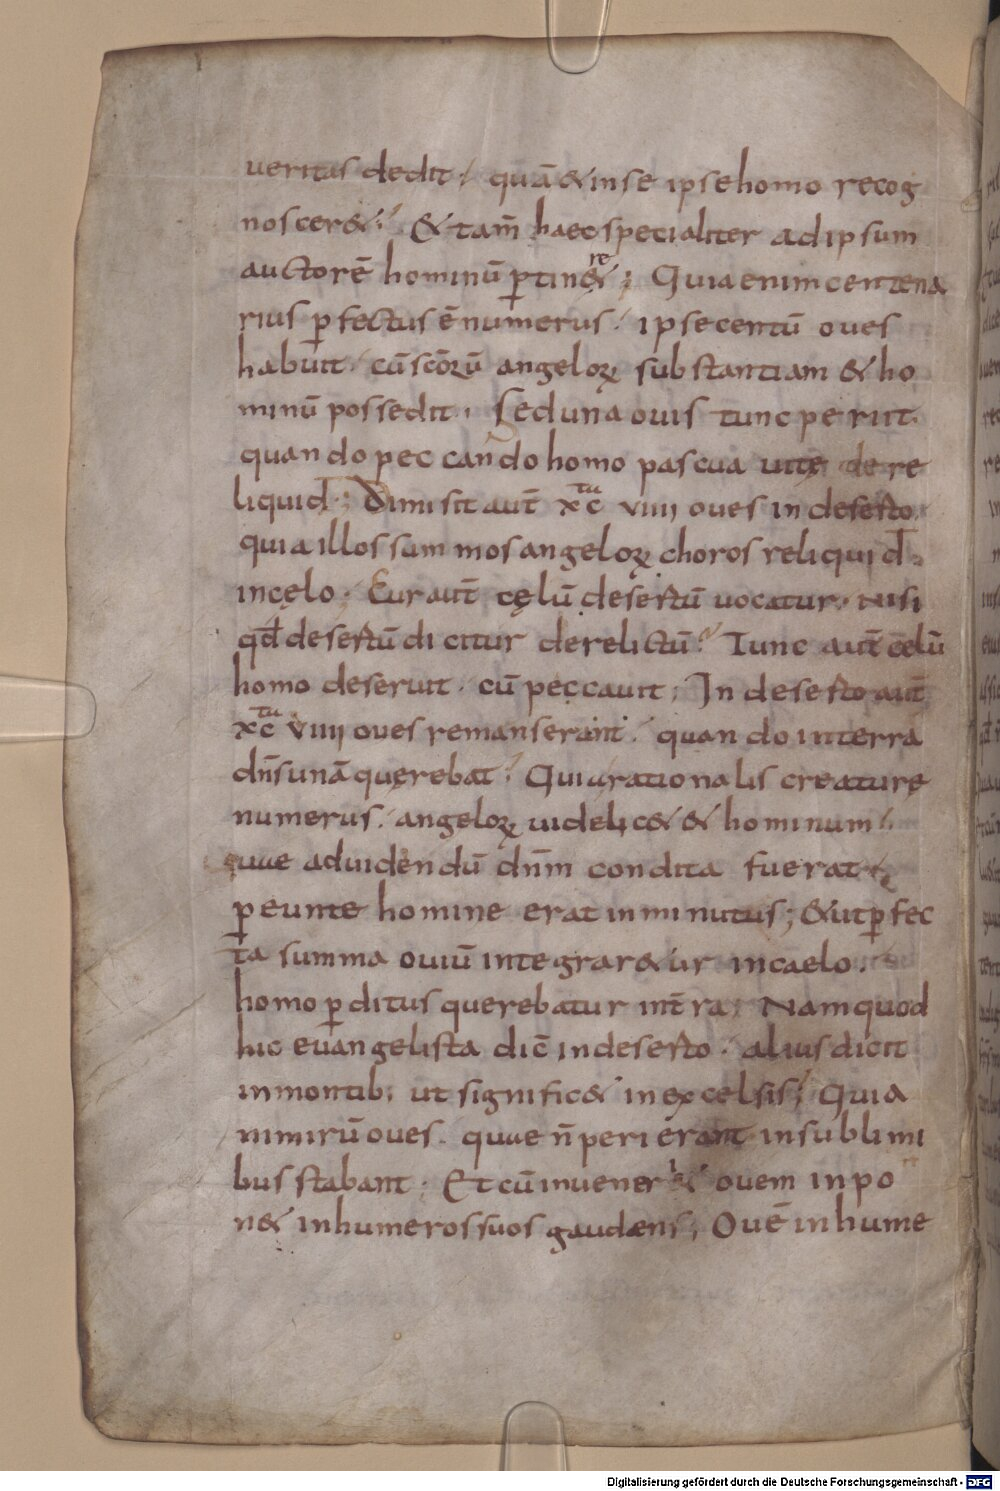 ueritas dedit; quā & in se ipse homo recog
noscer&; & tam̄ haec specialiter ad ipsum
auctorē hominū ꝑtin&re; Quia enim centena
rius ꝑfectus ē numerus. ipse centū oues
habuit. cū sc̄orū angeloꝝ substantiam & ho
minū possedit. Sed una ouis tunc periit.
quando peccando homo pascua uitę dere
liquid; Dimisit aut̄ xc̄ta uiiii oues in deserto.
quia illos summos angeloꝝ choros reliquid
in cęlo. Cur aut̄ cęlū desertū uocatur. nisi
qd̄ desertū dicitur derelictū? Tunc aut̄ cēlū
homo deseruit. cū peccauit; In deserto aut̄
xc̄ta uiiii oues remanserant. quando in terra
dn̄s unā querebat; Quia rationalis creaturę
numerus. angeloꝝ uidelic& & hominum
quae aduidendū dn̄m condita fuerat
ꝑeunte homine erat inminutus; & ut ꝑfec
ta summa ouiū integrar&ur in caelo.
homo ꝑditus querebatur in t̄ra; Nam quod
hic euangelista dic̄ in deserto. alius dicit
in montib; ut signific& in excelsis; Quia
nimirū oues. quae n̄ perierant in sublimi
bus stabant; Et cū inuenerit ouem inpo
n& in humeros suos gaudens; Ouē in hume
Digitalisierung gefördert durch die Deutsche Forschungsgemeinschaft - DFG